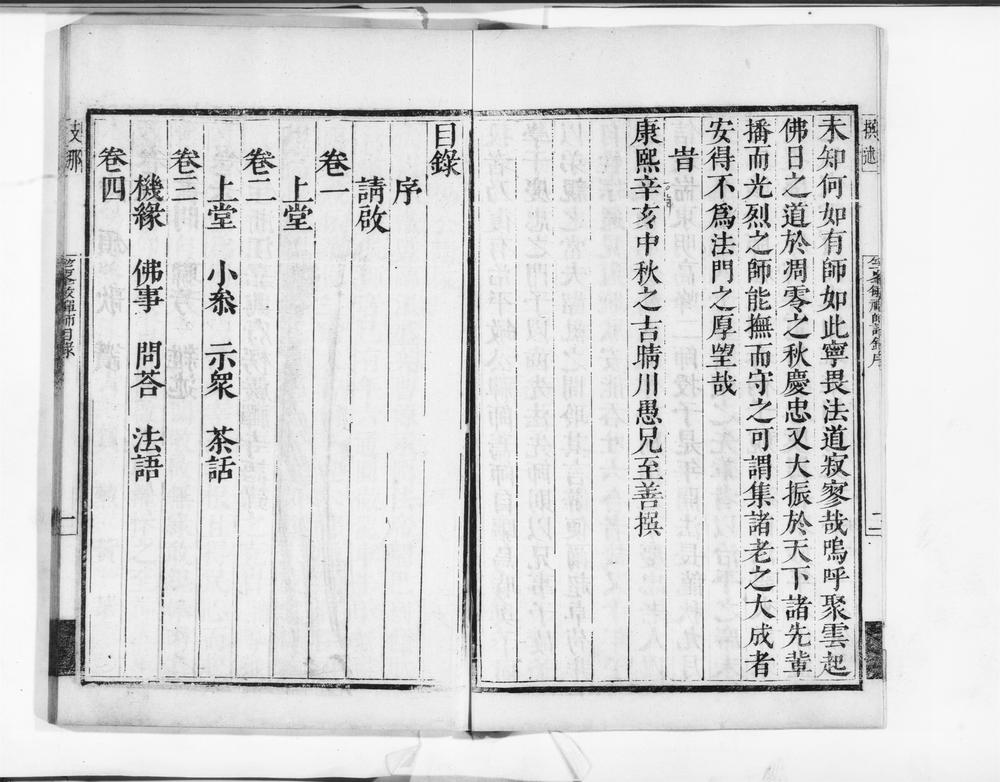 未知何如有師如此寧畏法道寂寥哉嗚呼聚雲起
佛日之道於凋零之秋慶忠又大振於天下諸先輩
播而光烈之師能撫而守之可謂集諸老之大成者
安得不為法門之厚望哉
旹
康熙辛亥中秋之吉晴川愚兄至善撰
目錄
序
請啟
卷一
上堂
卷二
上堂 小叅 示眾 茶話
卷三
機緣 佛事 問荅 法語
卷四
撰述
二
支那
一